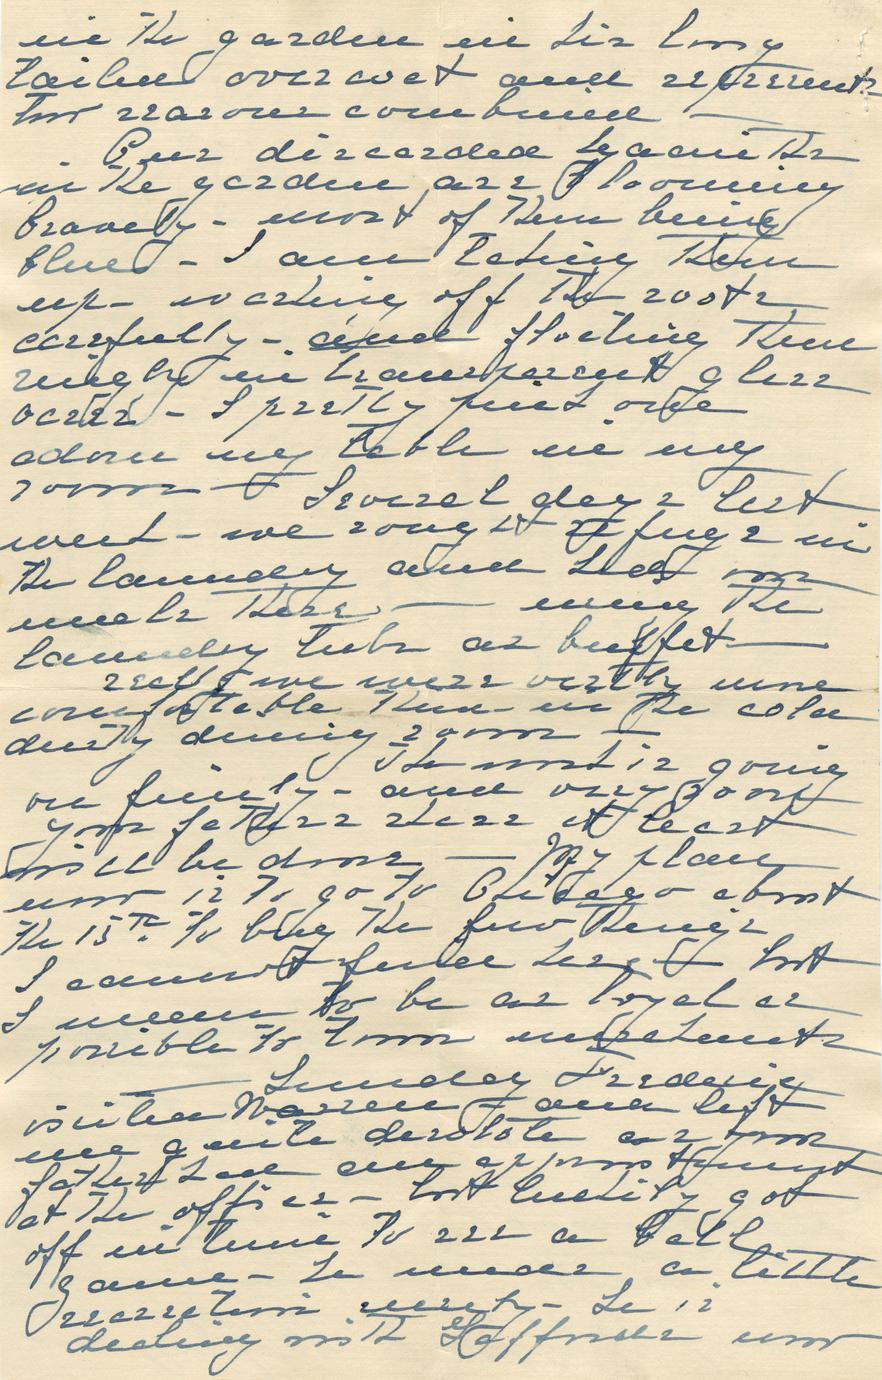 in the garden in his long
tailed overcoat and represents
two seasons combined —
Our discarded hyacinths
in the garden are blooming
bravely - most of them being
blue - I am taking them
up - washing off the roots
carefully - and floating them
singly in transparent glass
vases - A pretty pink one
adorns my table in my
room — Several days last
week - we sought refuge in
the laundry and had our
meals there — using the
laundry tubs as buffet —
really we were vastly more
comfortable than in the cold
dusty dining room —
The work is going
on finely - and very soon
your father's share at least
will be done — My plan
now is to go to Chicago about
the 15th. to buy the few things
I cannot find here - but
I mean to be as loyal as
possible to Town merchants
— Sunday Frederic
visited Warren - and left
me quite desolate as your
father had an appointment
at the office - but luckily got
off in time to see a ball
game - he needs a little
recreation surely - He is
dealing with now